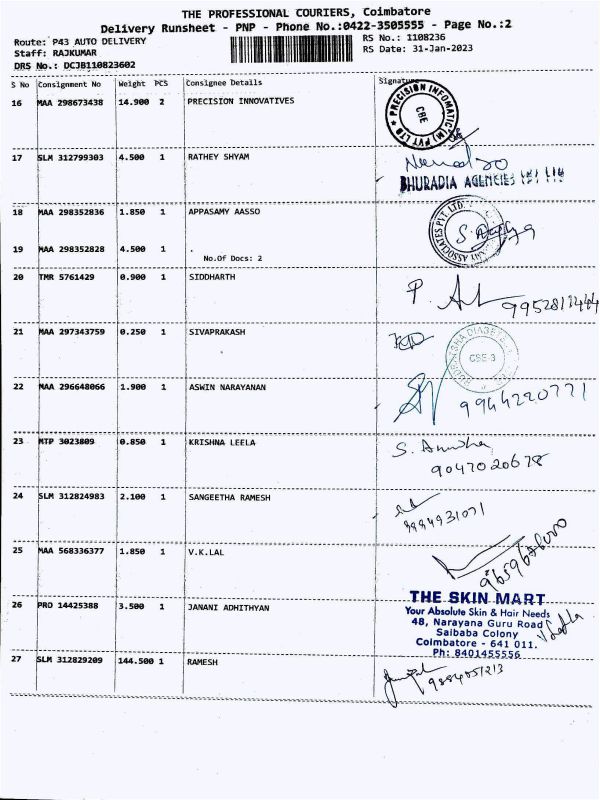 THE PROFESSIONAL COURIERS, Coimbatore
Delivery Runsheet - PNP - Phone No.:0422-3505555 - Page No.:2
Route: P43 AUTO DELIVERY
Staff: RAJKUMAR
DRS No.: DCJB110823602
RS No.: 1108236
RS Date: 31-Jan-2023
S No Consignment No Weight PCS Consignee Details Signature
16 MAA 298673438 14.900 2 PRECISION INNOVATIVES
PRECISION INFOMATIC (M) PVT LTD
CBE
17 SLM 312799303 4.500 1 RATHEY SHYAM
BHURADIA AGENCIES
18 MAA 298352836 1.850 1 APPASAMY AASSO
ASSOCIATES PVT. LTD.
19 MAA 298352828 4.500 1 .
No.Of Docs: 2
20 TMR 5761429 0.900 1 SIDDHARTH
21 MAA 297343759 0.250 1 SIVAPRAKASH
CBE-3
22 MAA 296648066 1.900 1 ASWIN NARAYANAN
9944220771
23 MTP 3023809 0.850 1 KRISHNA LEELA
9047020678
24 SLM 312824983 2.100 1 SANGEETHA RAMESH
25 MAA 568336377 1.850 1 V.K.LAL
26 PRO 14425388 3.500 1 JANANI ADHITHYAN
THE SKIN MART
Your Absolute Skin & Hair Needs
48, Narayana Guru Road
Saibaba Colony
Coimbatore - 641 011.
Ph: 8401455556
27 SLM 312829209 144.500 1 RAMESH